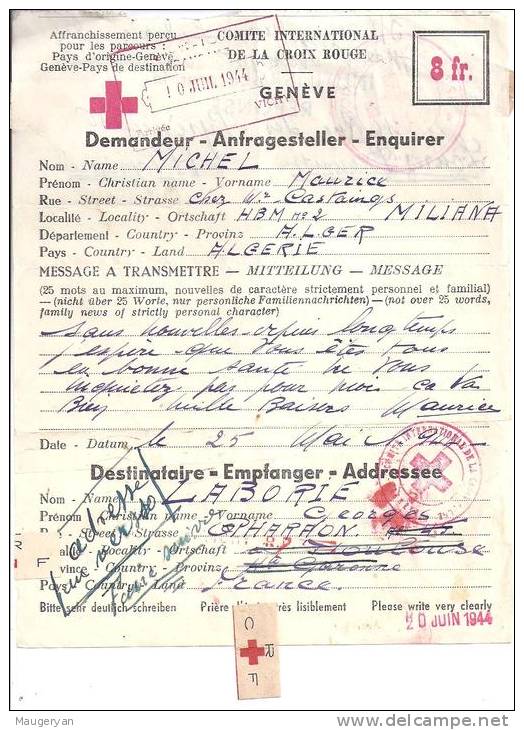 Affranchissement perçu
pour les parcours:
Pays d'origine-Genève
Genève-Pays de destination
COMITE INTERNATIONAL
DE LA CROIX ROUGE
GENÈVE
8 fr.
10 JUIL 1944
VICHY
Demandeur - Anfragesteller - Enquirer
Nom - Name MICHEL
Prénom - Christian name - Vorname Maurice
Rue - Street - Strasse chez Mr Castaings
Localité - Locality - Ortschaft HBM no 2 MILIANA
Département - Country - Provinz ALGER
Pays - Country - Land ALGERIE
MESSAGE A TRANSMETTRE — MITTEILUNG — MESSAGE
(25 mots au maximum, nouvelles de caractère strictement personnel et familial)
—(nicht über 25 Worte, nur personliche Familiennachrichten)—(not over 25 words,
family news of strictly personal character)
Sans nouvelles depuis longtemps
j'espère que vous êtes tous
en bonne santé ne vous
inquietez pas pour moi ça va
Bien mille Baisers Maurice
Date - Datum le 25 Mai 1944
Destinataire - Empfanger - Addressee
Nom - Name LABORIE
Prénom - Christian name - Vorname Georges
Street - Strasse PHARAON
alité - Locality - Ortschaft Toulouse
vince - Country - Provinz Hte Garonne
Pays - Country - Land France
adresse
au verso
Bitte sehr deutlich schreiben Prière très lisiblement Please write very clearly
20 JUIN 1944
C R F
Maugeryan
www.delcampe.net